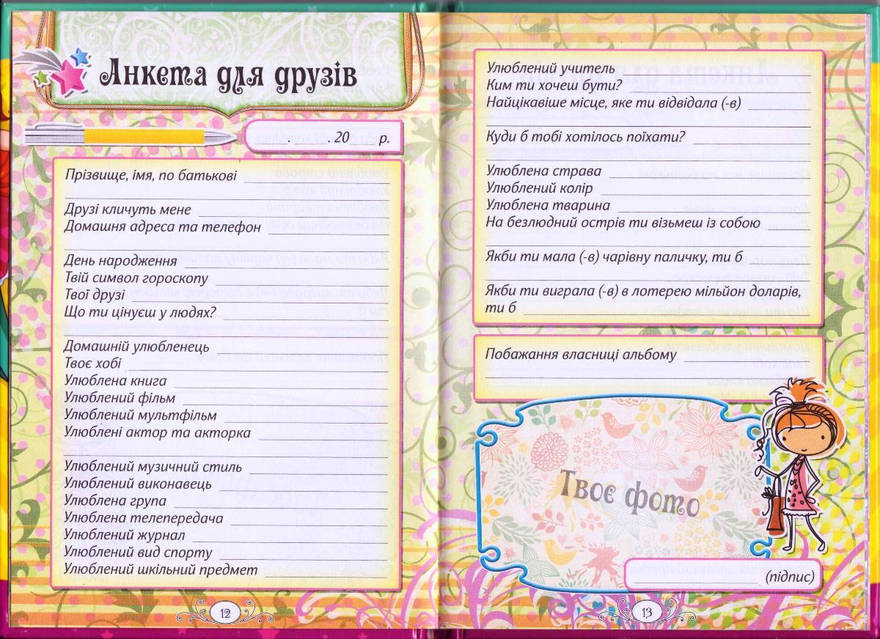 Анкета для друзів
. . 20 р.
Прізвище, імя, по батькові
Друзі кличуть мене
Домашня адреса та телефон
День народження
Твій символ гороскопу
Твої друзі
Що ти цінуєш у людях?
Домашній улюбленець
Твоє хобі
Улюблена книга
Улюблений фільм
Улюблений мультфільм
Улюблені актор та акторка
Улюблений музичний стиль
Улюблений виконавець
Улюблена група
Улюблена телепередача
Улюблений журнал
Улюблений вид спорту
Улюблений шкільний предмет
12
Улюблений учитель
Ким ти хочеш бути?
Найцікавіше місце, яке ти відвідала (-в)
Куди б тобі хотілось поїхати?
Улюблена страва
Улюблений колір
Улюблена тварина
На безлюдний острів ти візьмеш із собою
Якби ти мала (-в) чарівну паличку, ти б
Якби ти виграла (-в) в лотерею мільйон доларів,
ти б
Побажання власниці альбому
Твоє фото
(підпис)
13